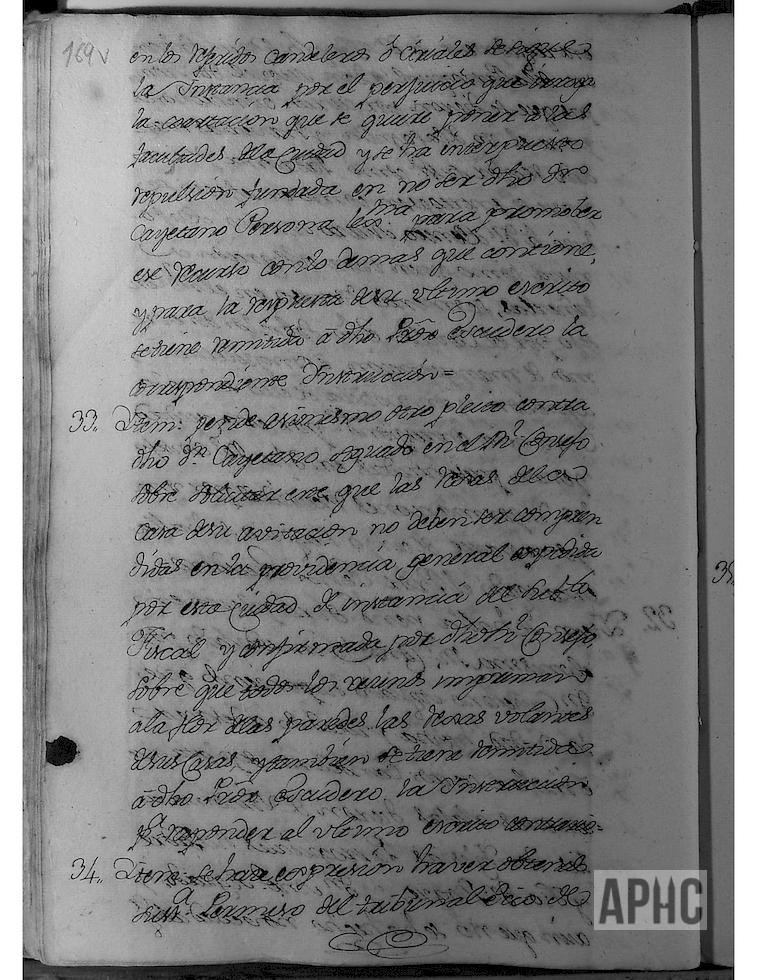 169v
en los referidos candeleros ô ciriales se sigue
la Instancia por el perjuicio que
la coartacion que se quiere poner à las
facultades de la Ciudad y se ha interpuesto
repulsion fundada en no ser dho dn
Cayetano Persona lexma para promober
ese recurso con lo demas que contiene,
y para la respuesta de su ultimo escrito
se tiene remitido â dho Escudero la
correspondiente Instruccion=
33. Item: pende asimismo otro pleito contra
dho dn Cayetano seguido en el Rl Consejo
sobre solicitar ese que las Rexas de la
casa de su avitacion no deben ser compren
didas en la providencia general expedida
por esta ciudad â instancia del
Fiscal y confirmada por dho Rl Consejo,
sobre que todos los vecinos impriman
a la flor de las paredes las Rexas volantes
de sus Casas, y tambien se tiene remitida
â dho Escudero la Instruccion
pa responder al ultimo escrito contrario=
34. Item se hace expresion haver obtenido
Permiso del tribunal ecco de
APHC